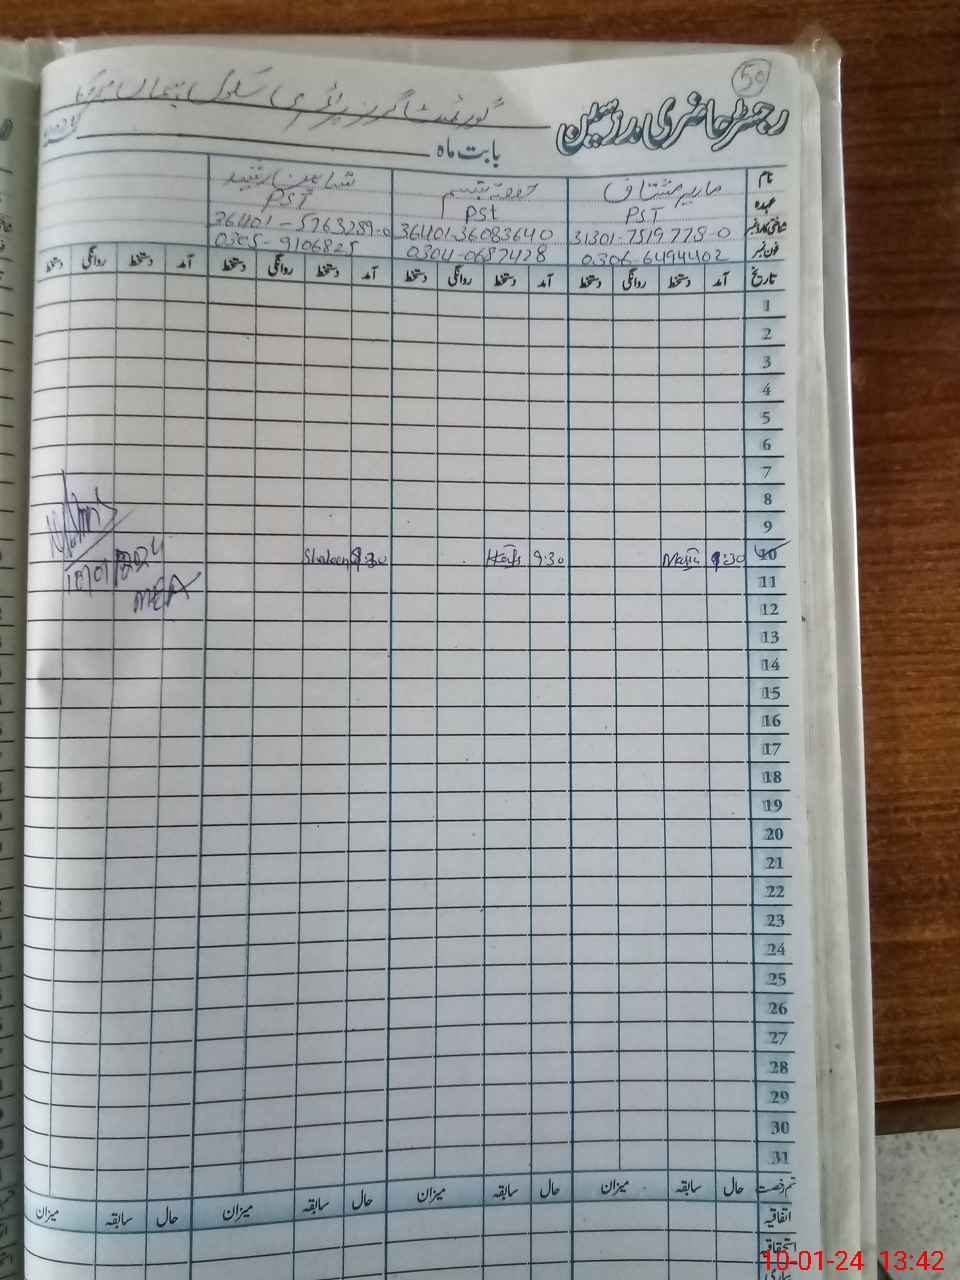 50
رجسٹر حاضری مدرسین گورنمنٹ گرلز پرائمری سکول
بابت ماہ
نام ماریہ مشتاق حفصہ تبسم شاہین رشید
عہدہ PST PSt PST
شناختی کارڈ نمبر 31301-7519778-0 36401-36083640 36401-5963289-0
فون نمبر 0306-6494402 0304-0657428 0305-9106825
تاریخ آمد دستخط روانگی دستخط آمد دستخط روانگی دستخط آمد دستخط روانگی دستخط آمد دستخط روانگی دستخط
1
2
3
4
5
6
7
8
9
10 9:30 9:30 Shaheen 9:30
11
10/01/2024
MEA
12
13
14
15
16
17
18
19
20
21
22
23
24
25
26
27
28
29
30
31
قسم رخصت حال سابقہ میزان حال سابقہ میزان حال سابقہ میزان حال سابقہ میزان
اتفاقیہ
استحقاقیہ
بیماری
10-01-24 13:42